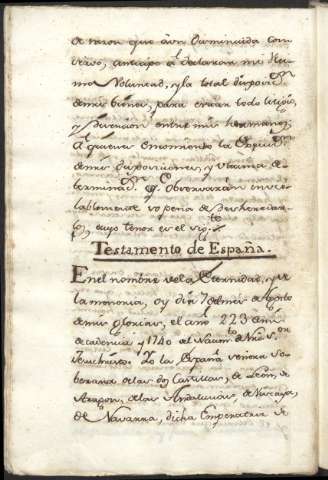 de razon que aun disminuida con-
servo, anticipo à declarar mi ulti-
ma Voluntad, y la total disposicion
de mis bienes, para evitar todo litigio,
y disencion entre mis hermanos,
A quienes encomiendo la Execucion
de mis disposiciones, y ultima de-
terminacion Observaran invio-
lablemente so pena de Desheredar-
los, cuyo tenor es el sigte.
Testamento de España.
En el nombre de la Eternidad, y de
la memoria, oy dia 7 del mes de Agosto
de mis glorias, el año 223 de mi
decadencia, y 1740 al Nacimto de Nro Sor
Jesuchristo Yo la España señora So-
berana de las dos Castillas, de Leon, de
Aragon, de las Andalucias, de Vizcaya,
de Navarra, dicha Emperatriz de